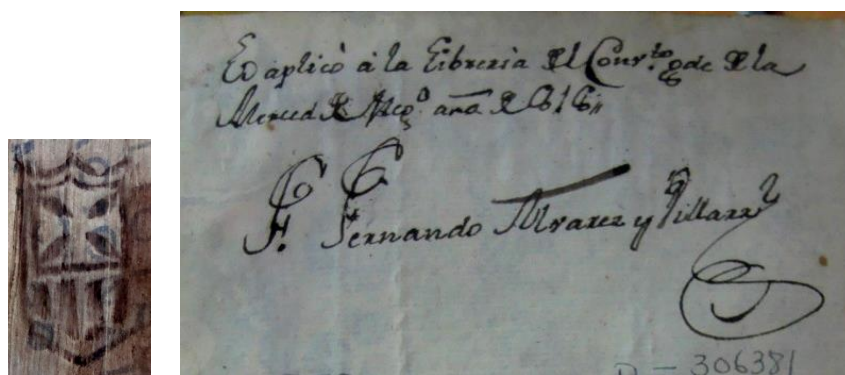 Lo aplicò à la Libreria del Conv.to gde de la
Merced de Mco año de 616
F. Fernando Alvarez y Villarrl
D – 306381